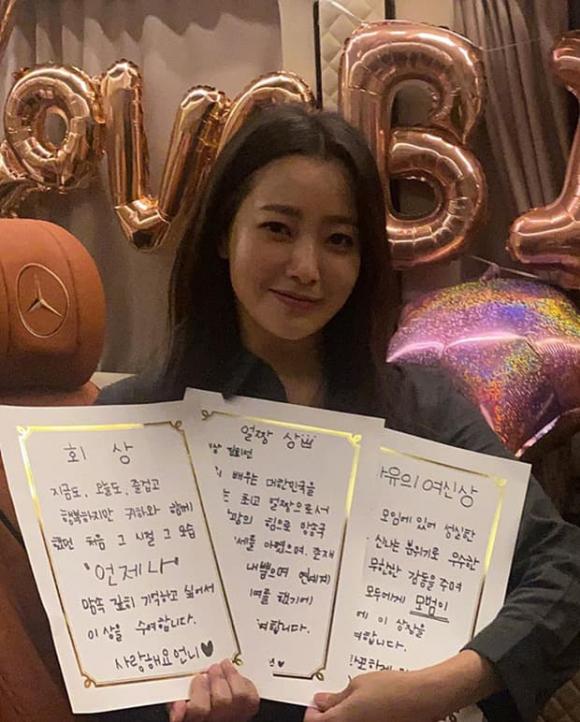 B
회 상
지금도, 오늘도, 즐겁고
행복하지만 귀하와 함께
했던 처음 그 시절 그 모습
"언제나"
맘속 깊히 기억하고 싶어서
이 상을 수여합니다.
사랑해요언니♥
얼짱 상
상 김희선
배우는 대한민국을
는 최고 얼짱으로서
힘으로 방송국
세를 아꼈으며, 존재
내뿜으며 연예계
여를 했기에
여합니다.
유의 여신상
모임에 있어 성실한
신나는 분위기로 우수한
무한한 감동을 주며
모두에게 모범이
에 이 상장을
여합니다.